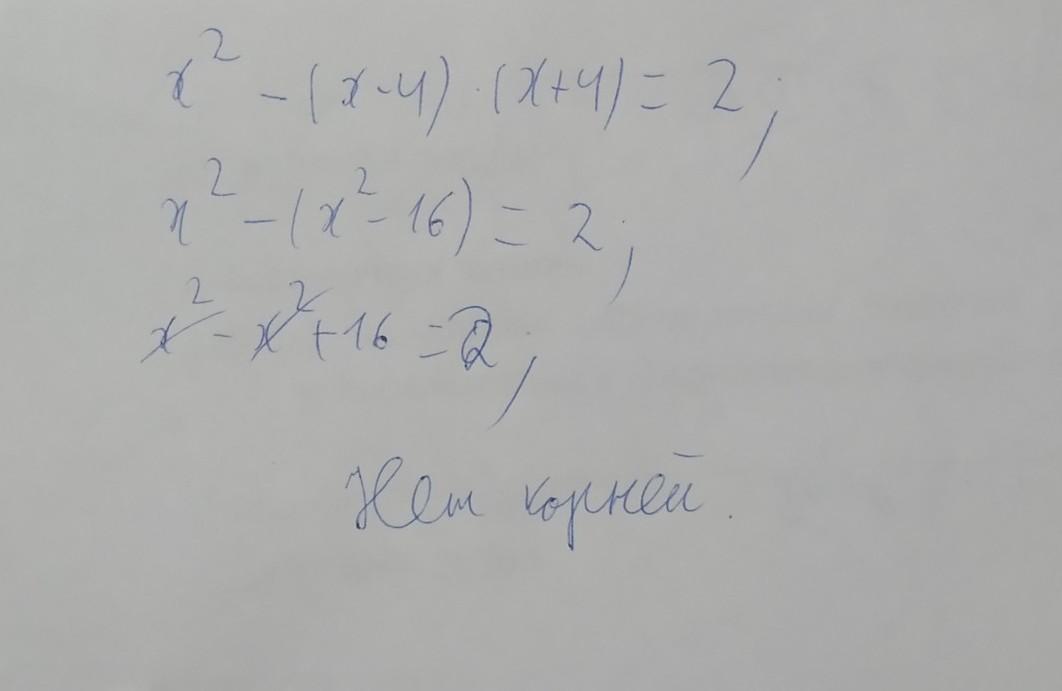 x² - (x-4) · (x+4) = 2;
x² - (x² - 16) = 2;
x² - x² + 16 = 2;
Нет корней.